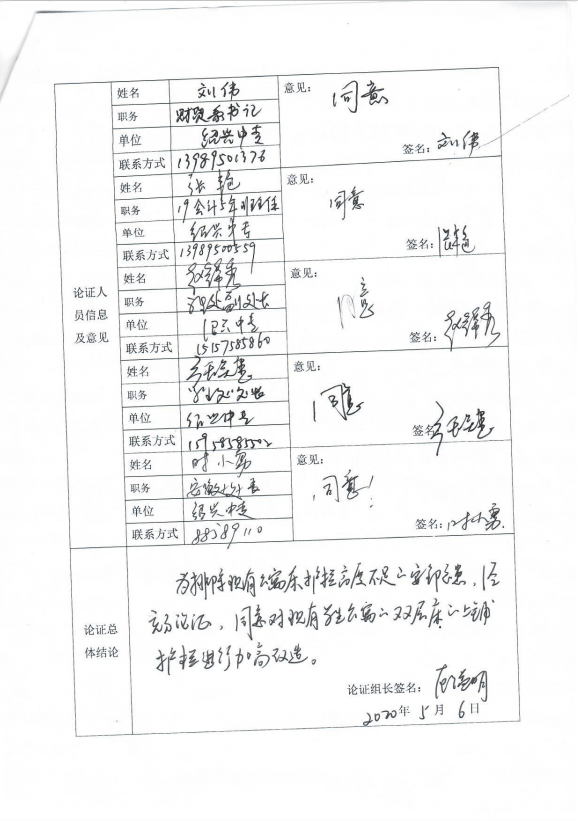 姓名 刘伟 意见： 同意
职务 财贸系书记
单位 绍兴中专 签名：刘伟
联系方式 13989501376
姓名 张艳 意见：
职务 19会计5年班主任 同意
单位 绍兴中专 签名：张艳
联系方式 13989500559
论证人员信息及意见
姓名 意见：
职务 副处长 同意
单位 绍兴中专 签名：
联系方式 15157585860
姓名 意见：
职务 同意
单位 绍兴中专 签名：
联系方式 15958585502
姓名 时小勇 意见：
职务 同意！
单位 绍兴中专 签名：时小勇
联系方式 88589110
论证总体结论
为排除现有公寓床护栏高度不足的安全隐患，经
充分论证，同意对现有学生公寓的双层床的上铺
护栏进行加高改造。
论证组长签名：
2020年 5月 6日